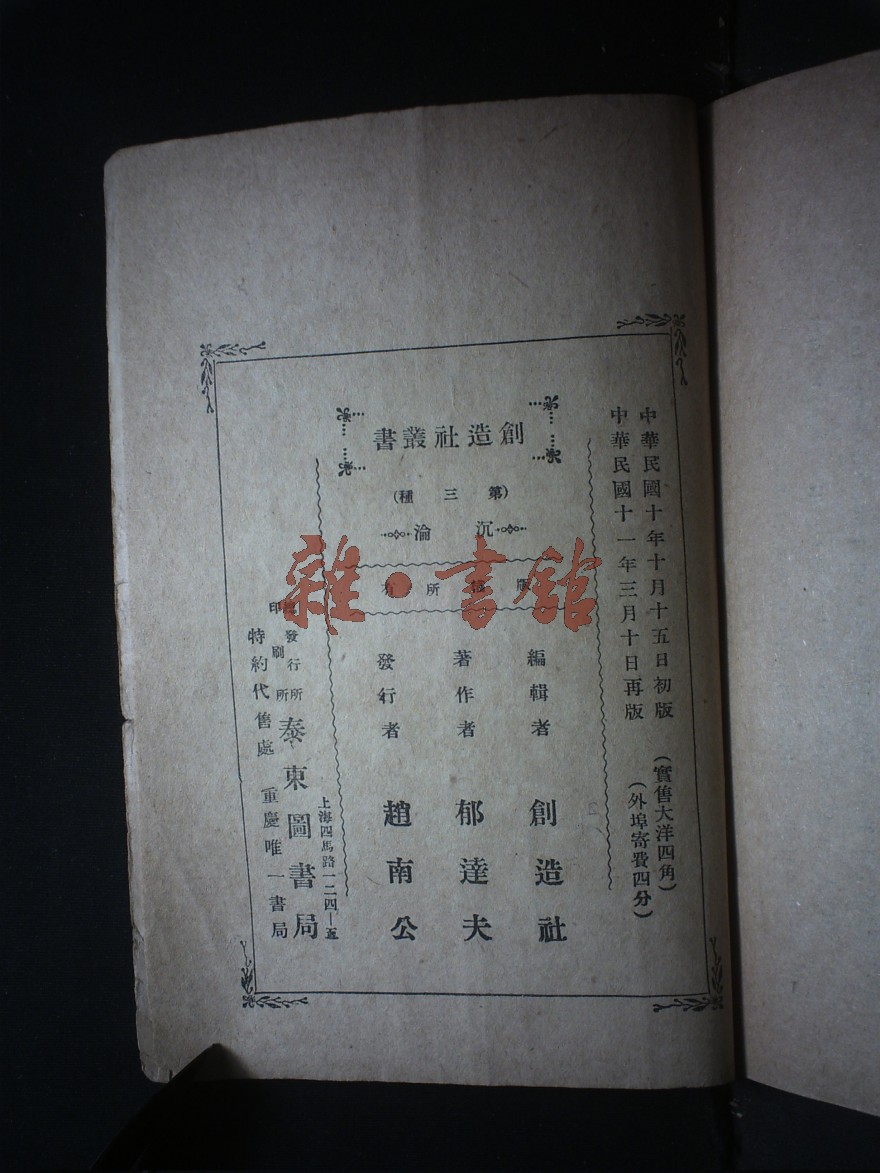 中華民國十年十月十五日初版 (實售大洋四角)
中華民國十一年三月十日再版 (外埠寄費四分)
創造社叢書
(第三種)
沉淪
版權所有
編輯者 創造社
著作者 郁達夫
發行者 趙南公
上海四馬路一二四—五
總發行所
印刷所
泰東圖書局
特約代售處 重慶唯一書局
雜·書館